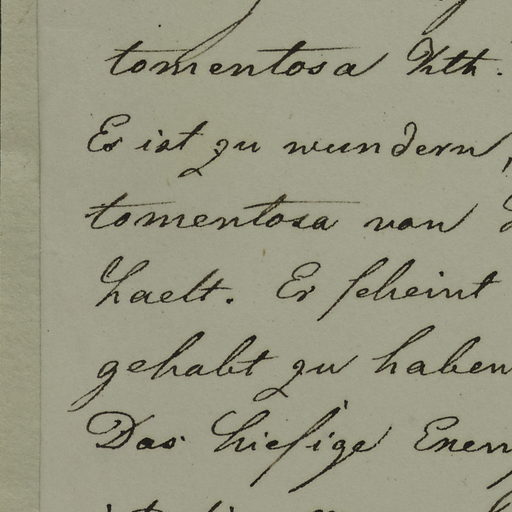 tomentosa Kth.
Es ist zu wundern,
tomentosa von
haelt. Er scheint
gehabt zu haben
Das hiesige Exem